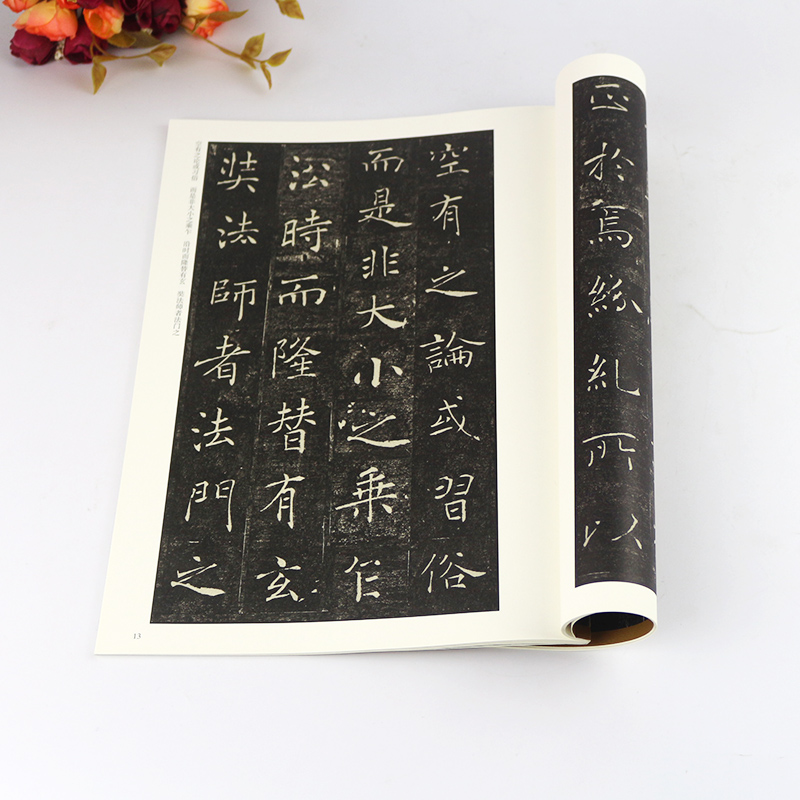 正於焉紛糺所以
空有之論或習俗
而是非大小之乘乍
沿時而隆替有玄
奘法師者法門之
空有之论或习俗 而是非大小之乘乍 沿时而隆替有玄 奘法师者法门之
13